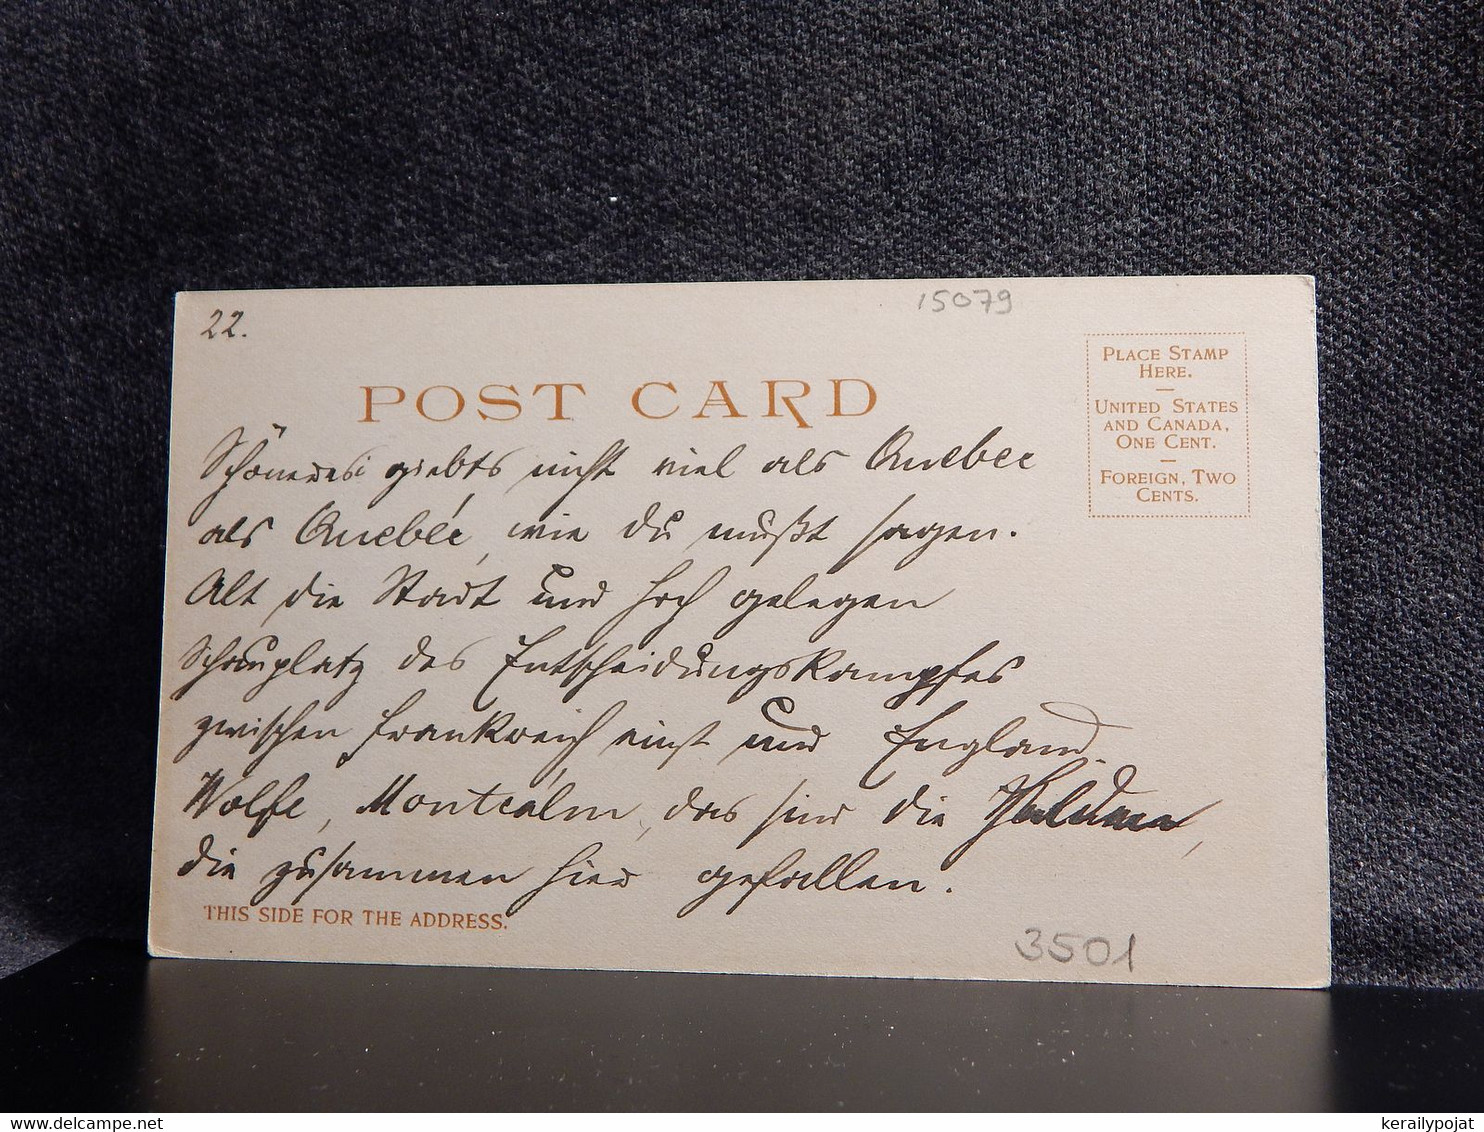 22.
15079
POST CARD
PLACE STAMP
HERE.
—
UNITED STATES
AND CANADA,
ONE CENT.
—
FOREIGN, TWO
CENTS.
Schöneres giebts nicht viel als Quebec
als Quebéc, wie du mußt sagen.
Alt die Stadt und hoch gelegen
Schauplatz des Entscheidungskampfes
zwischen Frankreich einst und England.
Wolfe, Montcálm, das sind die Helden,
die zusammen hier gefallen.
THIS SIDE FOR THE ADDRESS.
3501
kerailypojat